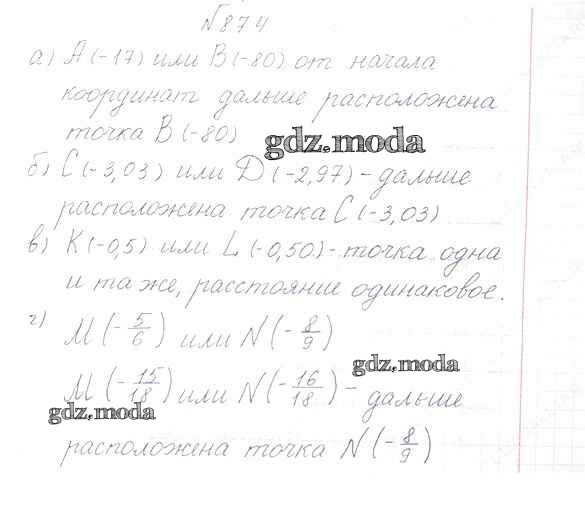 №874
а) А(-17) или В(-80) от начала
координат дальше расположена
точка В(-80)
gdz.moda
б) С(-3,03) или D(-2,97) - дальше
расположена точка С(-3,03)
в) К(-0,5) или L(-0,50) - точка одна
и та же, расстояние одинаковое.
г) М(-5/6) или N(-8/9)
gdz.moda
М(-15/18) или N(-16/18) - дальше
gdz.moda
расположена точка N(-8/9)